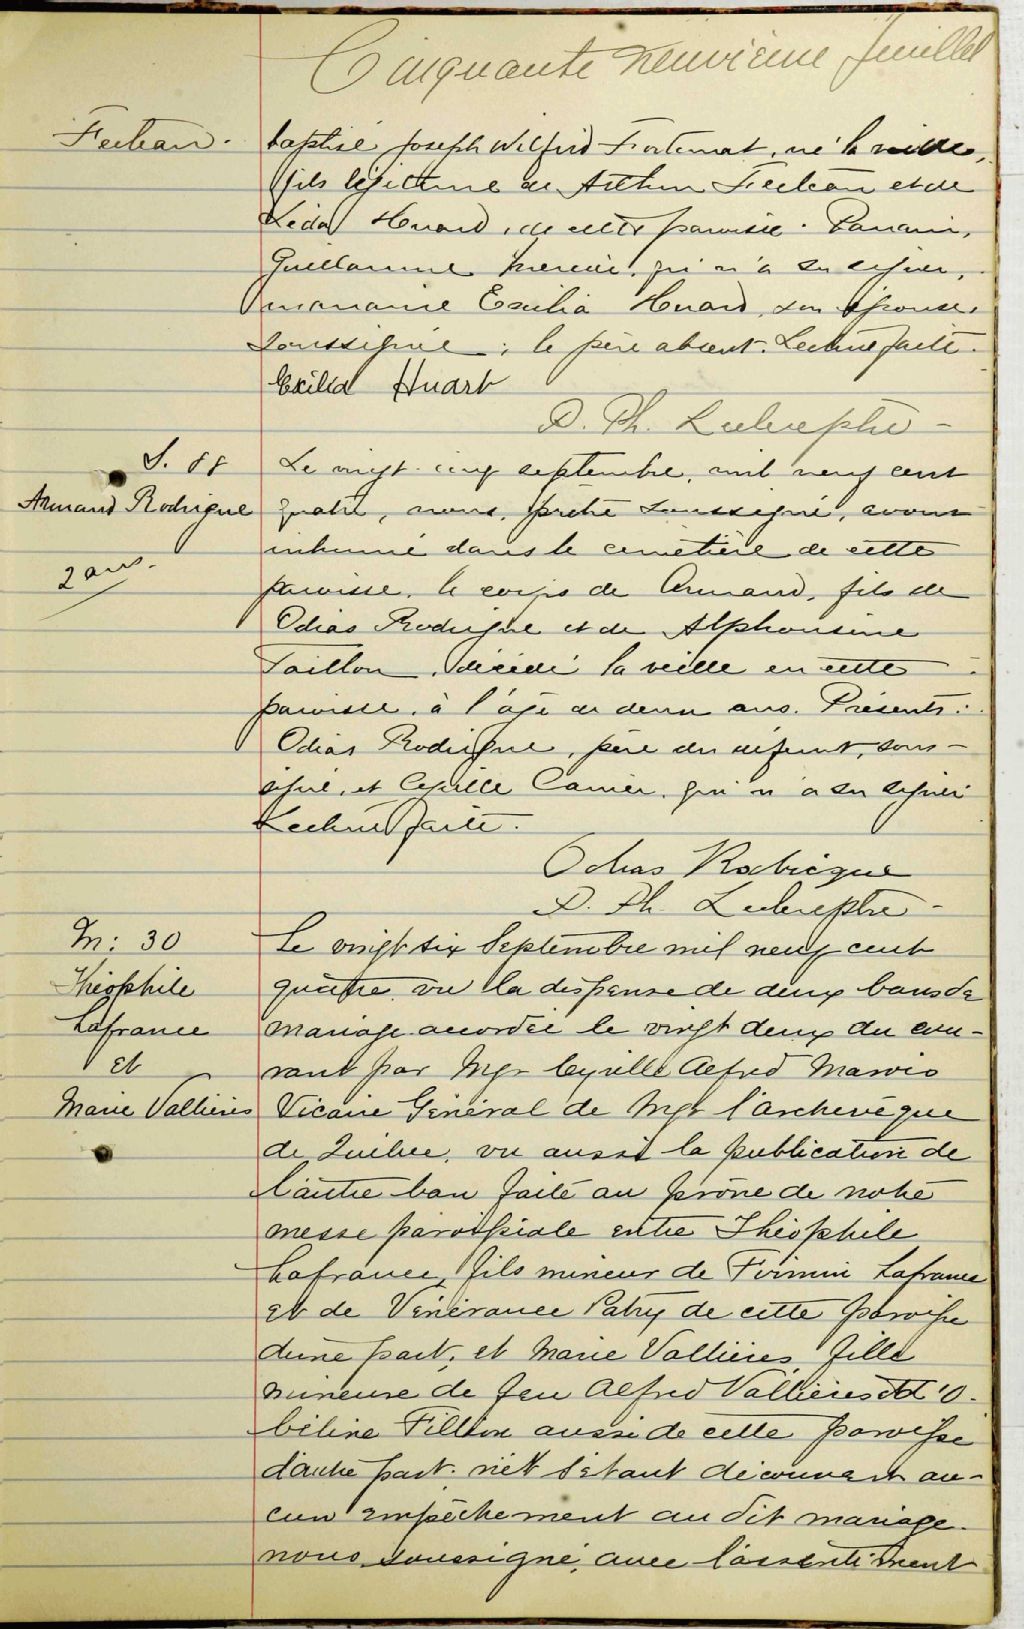 Cinquante neuvième feuillet
Fecteau.
baptisé Joseph Wilfrid Fortunat, né la veille,
fils légitime de Arthur Fecteau et de
Léda Huard, de cette paroisse. Parrain,
Guillaume Mercier, qui n'a su signer,
marraine Exilia Huard, son épouse,
soussignée; le père absent. Lecture faite.
Exilia Huart
D. Ph.
S. 88
Armand Rodrigue
2 ans.
Le vingt-cinq septembre, mil neuf cent
quatre, nous, prêtre soussigné, avons
inhumé dans le cimetière de cette
paroisse, le corps de Armand, fils de
Odias Rodrigue et de Alphonsine
Taillon, décédé la veille en cette
paroisse, à l'âge de deux ans. Présents:
Odias Rodrigue, père du défunt, sous-
signé, et Cyrille Carrier, qui n'a su signer
Lecture faite.
Odias Rodrigue
D. Ph.
M: 30
Théophile
Lafrance
et
Marie Vallières
Le vingt six Septembre mil neuf cent
quatre, vu la dispense de deux bans de
mariage accordée le vingt deux du cou-
rant par Mgr Cyrille Alfred Marois
Vicaire Général de Mgr l'archevêque
de Québec, vu aussi la publication de
l'autre ban faite au prône de notre
messe paroissiale entre Théophile
Lafrance, fils mineur de Firmin Lafrance
et de Vénérance Patry de cette paroisse
d'une part, et Marie Vallières, fille
mineure de feu Alfred Vallières et d'O-
béline Fillion aussi de cette paroisse
d'autre part. n'et s'étant découvert au-
cun empêchement au dit mariage.
nous soussigné, avec l'assentiment